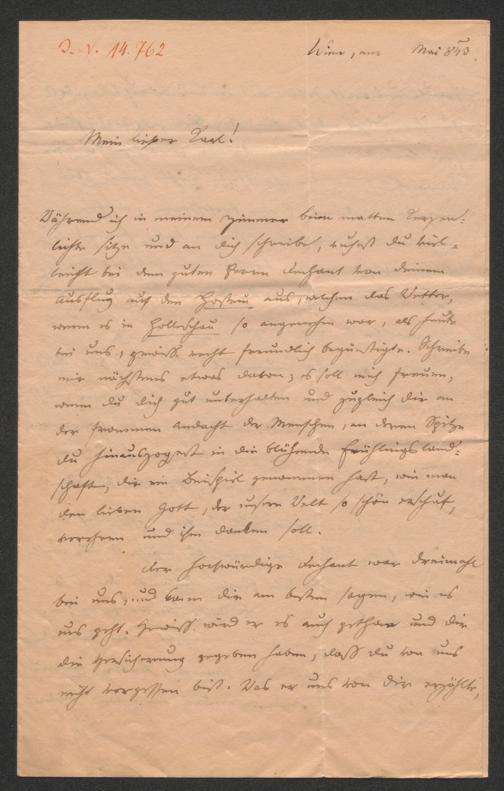 J. N. 14.762
Wien, am Mai 853.
Mein lieber Karl!
Während ich in meinem Zimmer beim matten Kerzen-
lichte sitze und an dich schreibe, ruhest du viel-
leicht bei dem guten Herrn Dechant von deinem
Ausflug auf den Hostein aus, welchen das Wetter,
wenn es in Holleschau so angenehm war, als heute
bei uns, gewiß recht freundlich begünstigte. Schreibe
mir nächstens etwas davon; es soll mich freuen,
wenn du dich gut unterhalten und zugleich dir an
der frommen Andacht der Menschen, an deren Spitze
du hinauszogest in die blühende Frühlingsland-
schaft, dir ein Beispiel genommen hast, wie man
den lieben Gott, der unsere Welt so schön erschuf,
verehren und ihm danken soll.
Der hochwürdige Dechant war dreimahl
bei uns, und kann dir am besten sagen, wie es
uns geht. Gewiß wird er es auch gethan und dir
die Versicherung gegeben haben, daß du von uns
nicht vergessen bist. Was er uns von dir erzählte,